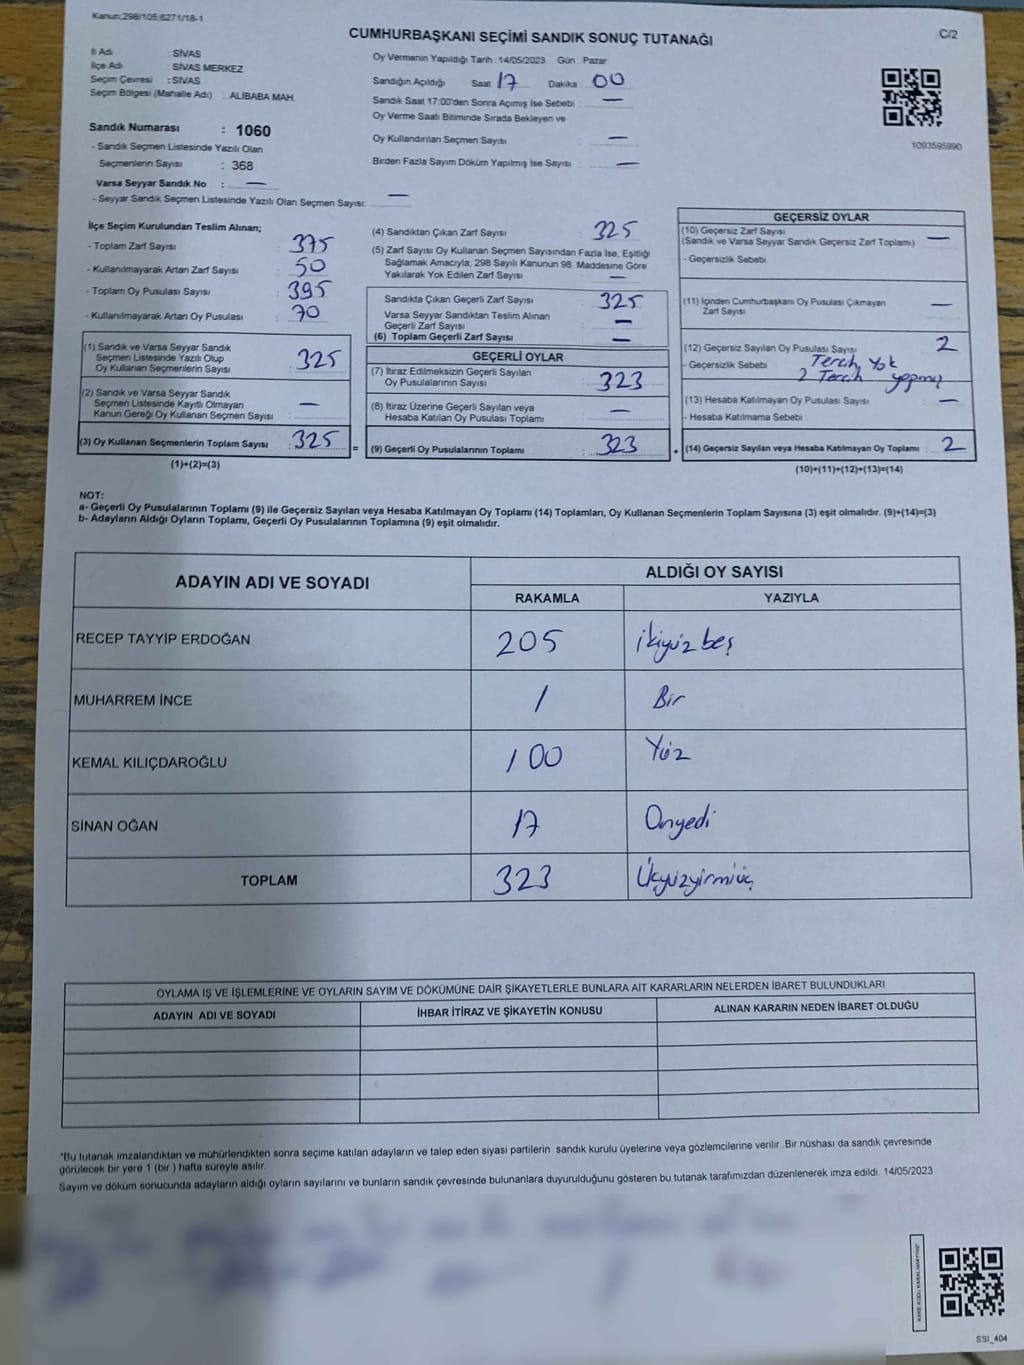 Kanun;298/105;6271/18-1
C/2
CUMHURBAŞKANI SEÇİMİ SANDIK SONUÇ TUTANAĞI
İl Adı : SİVAS
İlçe Adı : SİVAS MERKEZ
Seçim Çevresi : SİVAS
Seçim Bölgesi (Mahalle Adı) : ALİBABA MAH.
Sandık Numarası : 1060
- Sandık Seçmen Listesinde Yazılı Olan
Seçmenlerin Sayısı : 368
Varsa Seyyar Sandık No : —
- Seyyar Sandık Seçmen Listesinde Yazılı Olan Seçmen Sayısı: —
Oy Vermenin Yapıldığı Tarih : 14/05/2023 Gün : Pazar
Sandığın Açıldığı Saat 17 Dakika : 00
Sandık Saat 17:00'den Sonra Açımış İse Sebebi : —
Oy Verme Saati Bitiminde Sırada Bekleyen ve
Oy Kullandırılan Seçmen Sayısı : —
Birden Fazla Sayım Döküm Yapılmış İse Sayısı : —
1093595990
İlçe Seçim Kurulundan Teslim Alınan;
- Toplam Zarf Sayısı : 375
- Kullanılmayarak Artan Zarf Sayısı : 50
- Toplam Oy Pusulası Sayısı : 395
- Kullanılmayarak Artan Oy Pusulası : 70
(1) Sandık ve Varsa Seyyar Sandık
Seçmen Listesinde Yazılı Olup
Oy Kullanan Seçmenlerin Sayısı : 325
(2) Sandık ve Varsa Seyyar Sandık
Seçmen Listesinde Kayıtlı Olmayan
Kanun Gereği Oy Kullanan Seçmen Sayısı : —
(3) Oy Kullanan Seçmenlerin Toplam Sayısı : 325
(1)+(2)=(3)
(4) Sandıktan Çıkan Zarf Sayısı : 325
(5) Zarf Sayısı Oy Kullanan Seçmen Sayısından Fazla İse, Eşitliği
Sağlamak Amacıyla, 298 Sayılı Kanunun 98. Maddesine Göre
Yakılarak Yok Edilen Zarf Sayısı : —
Sandıkta Çıkan Geçerli Zarf Sayısı : 325
Varsa Seyyar Sandıktan Teslim Alınan
Geçerli Zarf Sayısı : —
(6) Toplam Geçerli Zarf Sayısı : —
GEÇERLİ OYLAR
(7) İtiraz Edilmeksizin Geçerli Sayılan
Oy Pusulalarının Sayısı : 323
(8) İtiraz Üzerine Geçerli Sayılan veya
Hesaba Katılan Oy Pusulası Toplamı : —
= (9) Geçerli Oy Pusulalarının Toplamı : 323
GEÇERSİZ OYLAR
(10) Geçersiz Zarf Sayısı : —
(Sandık ve Varsa Seyyar Sandık Geçersiz Zarf Toplamı)
- Geçersizlik Sebebi :
(11) İçinden Cumhurbaşkanı Oy Pusulası Çıkmayan
Zarf Sayısı : —
(12) Geçersiz Sayılan Oy Pusulası Sayısı : 2
- Geçersizlik Sebebi : Tercih Yok
2 Tercih yapmış
(13) Hesaba Katılmayan Oy Pusulası Sayısı : —
- Hesaba Katılmama Sebebi :
+ (14) Geçersiz Sayılan veya Hesaba Katılmayan Oy Toplamı : 2
(10)+(11)+(12)+(13)=(14)
NOT:
a- Geçerli Oy Pusulalarının Toplamı (9) ile Geçersiz Sayılan veya Hesaba Katılmayan Oy Toplamı (14) Toplamları, Oy Kullanan Seçmenlerin Toplam Sayısına (3) eşit olmalıdır. (9)+(14)=(3)
b- Adayların Aldığı Oyların Toplamı, Geçerli Oy Pusulalarının Toplamına (9) eşit olmalıdır.
ADAYIN ADI VE SOYADI ALDIĞI OY SAYISI
RAKAMLA YAZIYLA
RECEP TAYYİP ERDOĞAN 205 ikiyüzbeş
MUHARREM İNCE 1 Bir
KEMAL KILIÇDAROĞLU 100 Yüz
SİNAN OĞAN 17 Onyedi
TOPLAM 323 Üçyüzyirmiüç
OYLAMA İŞ VE İŞLEMLERİNE VE OYLARIN SAYIM VE DÖKÜMÜNE DAİR ŞİKAYETLERLE BUNLARA AİT KARARLARIN NELERDEN İBARET BULUNDUKLARI
ADAYIN ADI VE SOYADI İHBAR İTİRAZ VE ŞİKAYETİN KONUSU ALINAN KARARIN NEDEN İBARET OLDUĞU
*Bu tutanak imzalandıktan ve mühürlendikten sonra seçime katılan adayların ve talep eden siyasi partilerin sandık kurulu üyelerine veya gözlemcilerine verilir .Bir nüshası da sandık çevresinde
görülecek bir yere 1 (bir ) hafta süreyle asılır.
Sayım ve döküm sonucunda adayların aldığı oyların sayılarını ve bunların sandık çevresinde bulunanlara duyurulduğunu gösteren bu tutanak tarafımızdan düzenlenerek imza edildi. 14/05/2023
SSI_404